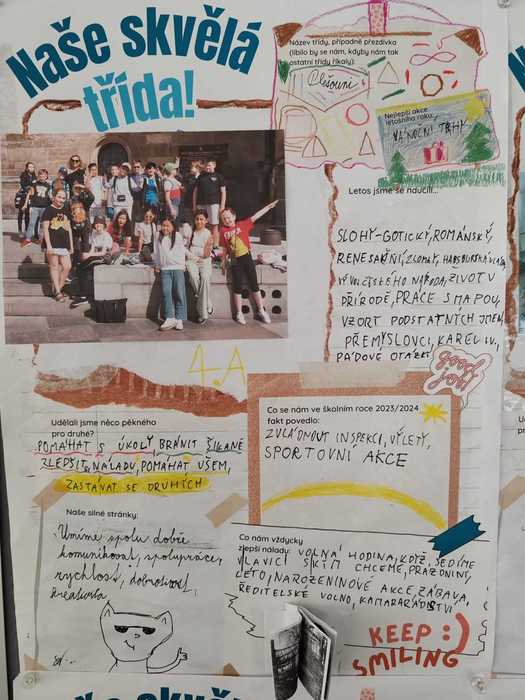 Naše skvělá
třída!
Název třídy, případně přezdívka
(líbilo by se nám, kdyby nám tak
ostatní třídy říkaly):
Plešouni
Nejlepší akce
letošního roku:
VÁNOČNÍ TRHY
Letos jsme se naučili...
SLOHY-GOTICKÝ, ROMÁNSKÝ,
RENESANČNÍ, ZLOMKY, HABSBURSKÁ VLÁDA,
ŽIVOT V
PŘÍRODĚ, PRÁCE S MAPOU,
VZORY PODSTATNÝCH JMEN,
PŘEMYSLOVCI, KAREL IV.,
PÁDOVÉ OTÁZKY
good
job!
4.A
Udělali jsme něco pěkného
pro druhé?
POMÁHAT S ÚKOLY, BRÁNIT ŠIKANĚ
ZLEPŠIT NÁLADU, POMÁHAT VŠEM,
ZASTÁVAT SE DRUHÝCH
Co se nám ve školním roce 2023/2024
fakt povedlo:
ZVLÁDNOUT INSPEKCI, VÝLETY,
SPORTOVNÍ AKCE
Naše silné stránky:
Umíme spolu dobře
komunikovat, spolupráce,
rychlost, dobrotivost,
kreativita
Co nám vždycky
zlepší náladu: VOLNÁ HODINA, KDYŽ SEDÍME
V LAVICI S KÝM CHCEME, PRÁZDNINY,
LÉTO, NAROZENINOVÉ AKCE, ZÁBAVA,
ŘEDITELSKÉ VOLNO, KAMARÁDSTVÍ
KEEP :)
SMILING